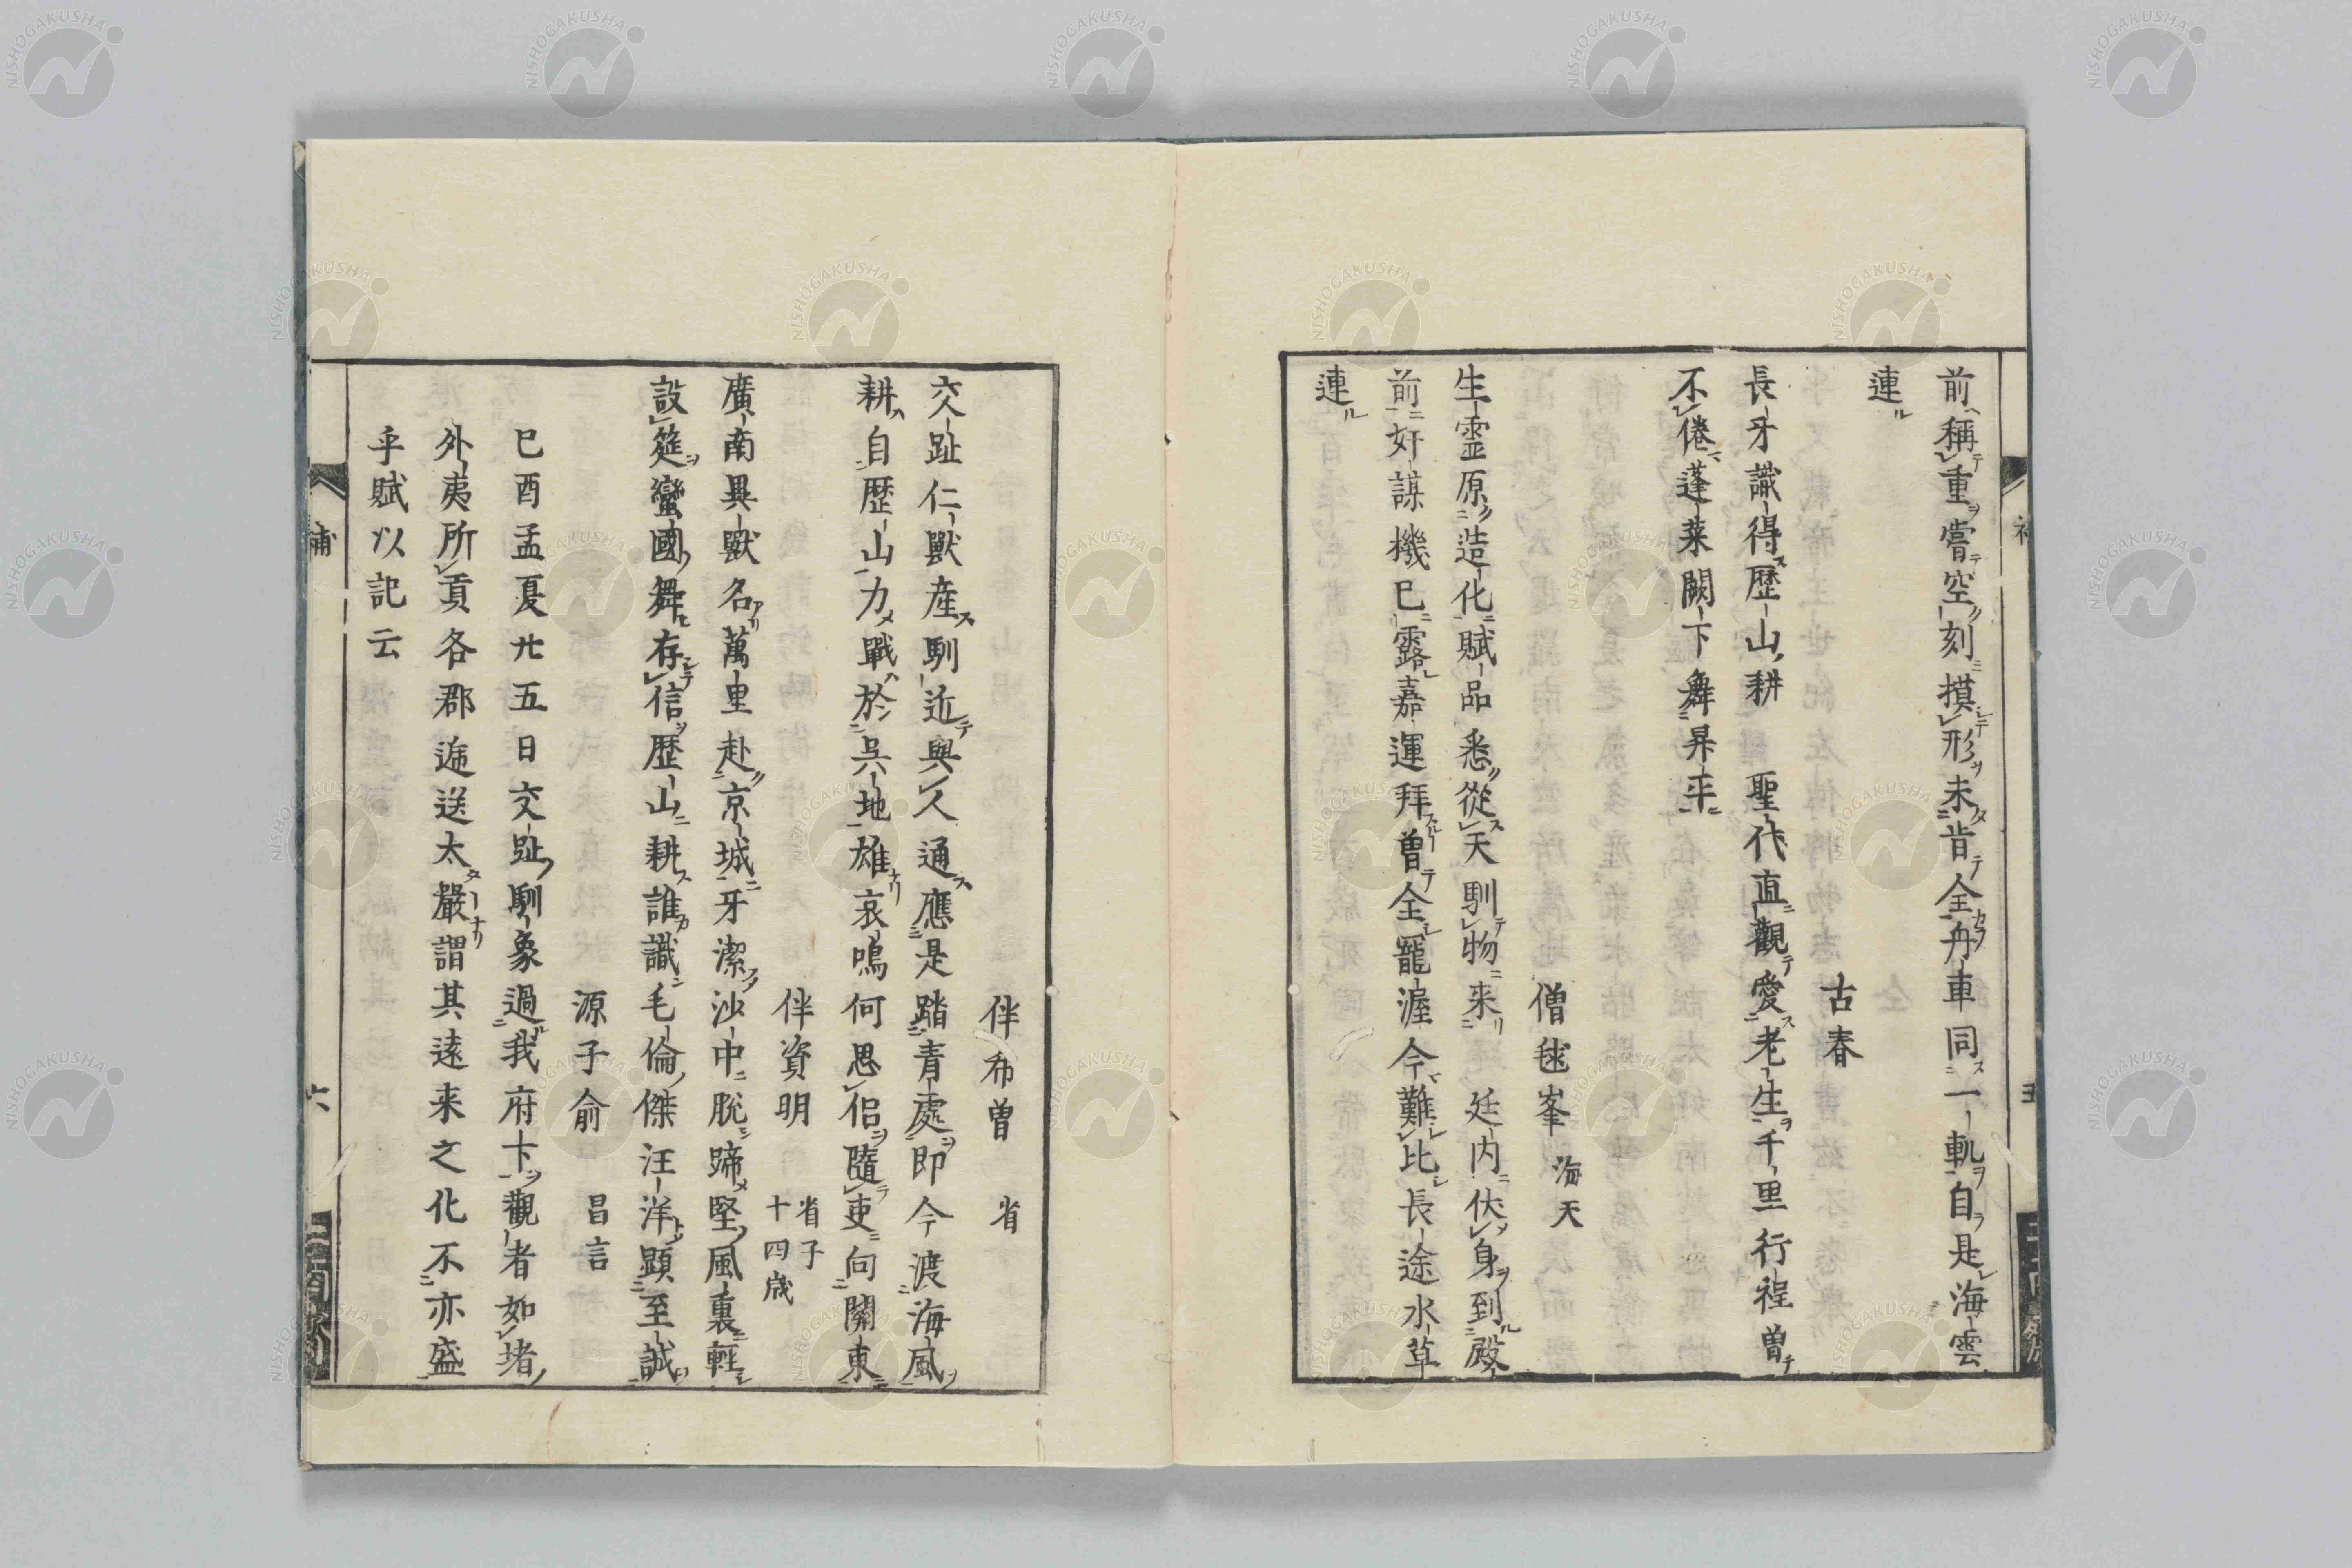 前稱重嘗空刻摸形未肯全舟車同一軌自是海雲
連
古春
長牙識得歴山耕　聖代直觀愛老生千里行程曽
不倦蓬莱闕下舞昇平
僧毬峯　海天
生靈原造化賦品悉從天馴物来　廷内伏身到殿
前奸謀機已露嘉運拜曽全寵渥今難比長途水草
連
伴希曽　省
交趾仁獸産馴近與人通應是踏青處即今渡海風
耕自歴山力戰於呉地雄哀鳴何思侶隨吏向關東
伴資明　省子十四歳
廣南異獸名萬里赴京城牙潔沙中脱蹄堅風裏輕
設筵蠻國舞存信歴山耕誰識毛倫傑汪洋顕至誠
源子俞　昌言
巳酉孟夏廿五日交趾馴象過我府下觀者如堵
外夷所貢各郡迤送太嚴謂其遠来之化不亦盛
乎賦以記云
補
六
NISHOGAKUSHA